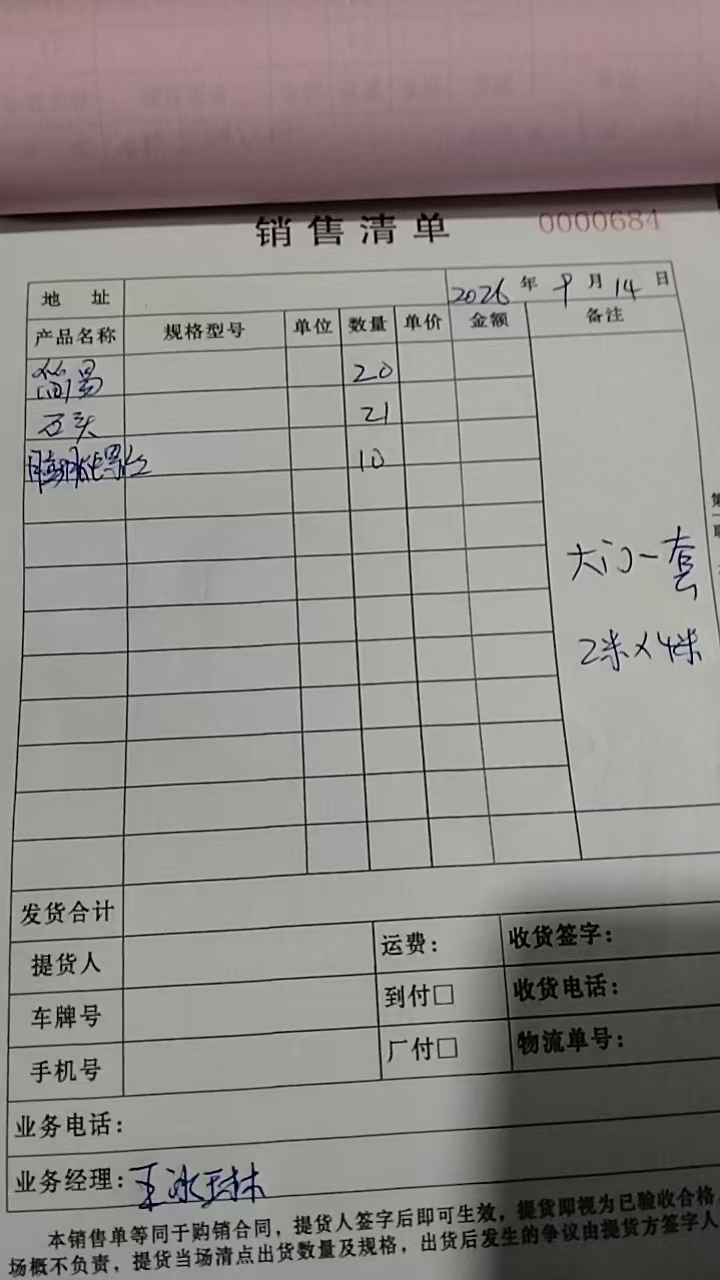 销售清单 0000684
地 址 2026 年 9 月 14 日
产品名称 规格型号 单位 数量 单价 金额 备注
简易 20
石头 21
膨胀螺丝 10
大门一套
2米×4米
发货合计
提货人 运费: 收货签字:
车牌号 到付□ 收货电话:
手机号 厂付□ 物流单号:
业务电话:
业务经理: 王冰
本销售单等同于购销合同，提货人签字后即可生效，提货即视为已验收合格
场概不负责，提货当场清点出货数量及规格，出货后发生的争议由提货方签字人